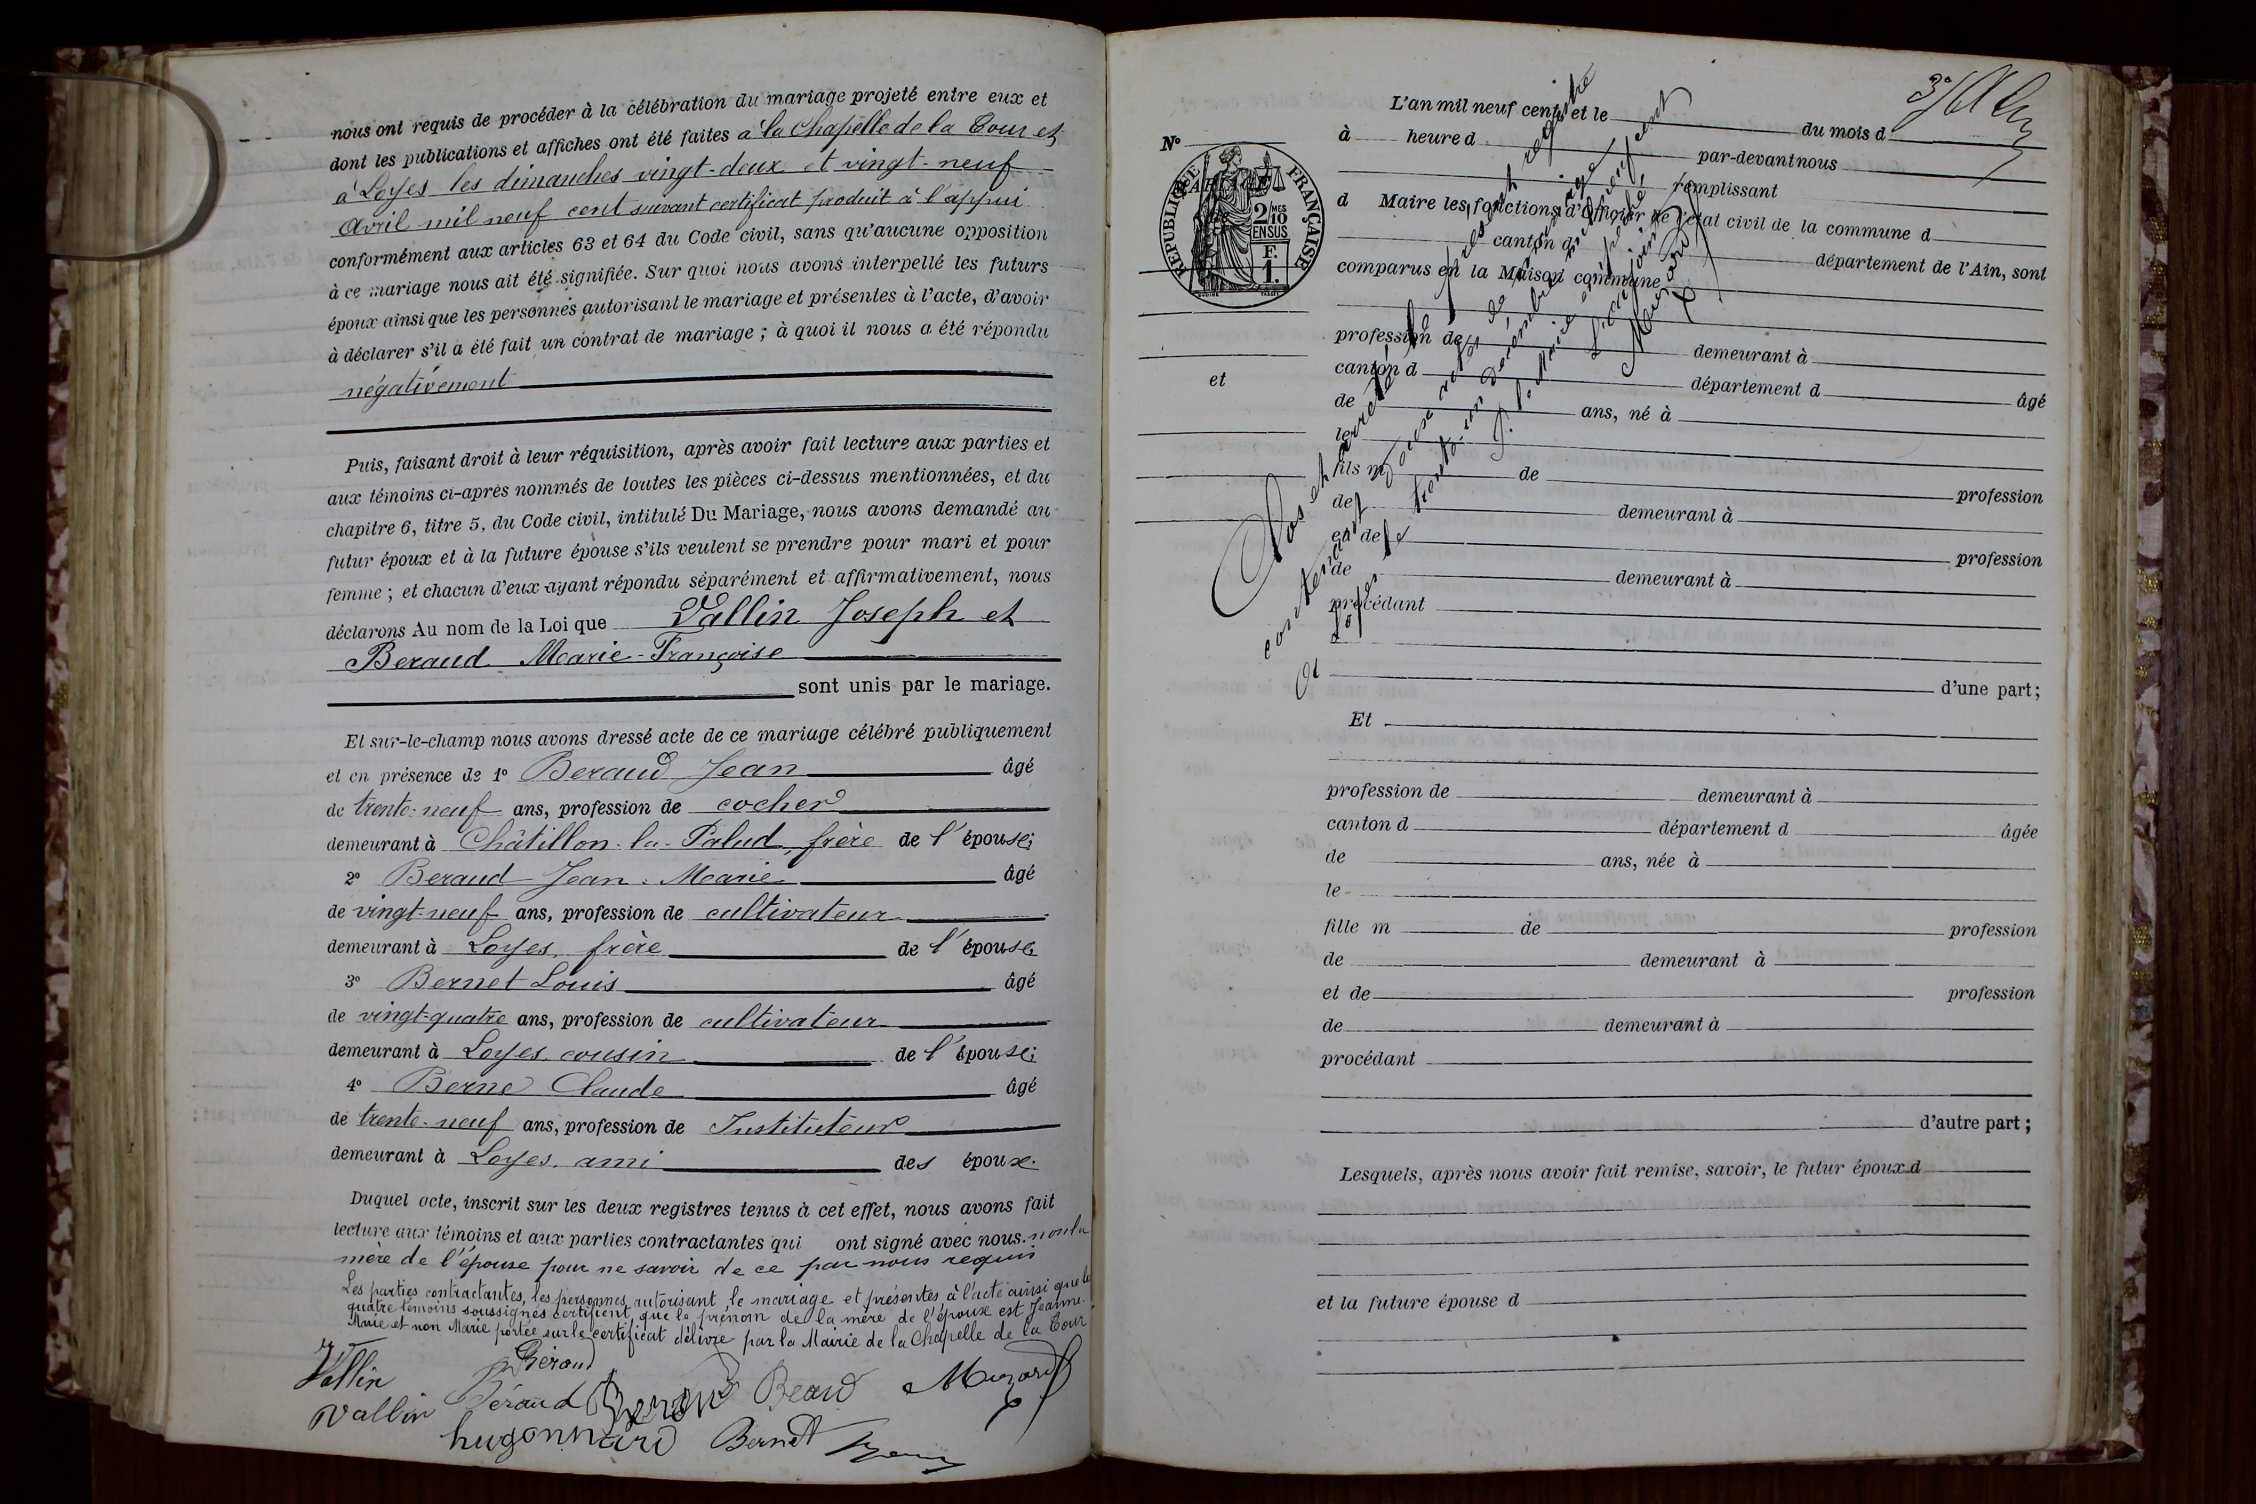 nous ont requis de procéder à la célébration du mariage projeté entre eux et
dont les publications et affiches ont été faites à la Chapelle de la Tour et
à Loyes les dimanches vingt-deux et vingt-neuf
avril mil neuf cent suivant certificat produit à l'appui
conformément aux articles 63 et 64 du Code civil, sans qu'aucune opposition
à ce mariage nous ait été signifiée. Sur quoi nous avons interpellé les futurs
époux ainsi que les personnes autorisant le mariage et présentes à l'acte, d'avoir
à déclarer s'il a été fait un contrat de mariage ; à quoi il nous a été répondu
négativement
Puis, faisant droit à leur réquisition, après avoir fait lecture aux parties et
aux témoins ci-après nommés de toutes les pièces ci-dessus mentionnées, et du
chapitre 6, titre 5, du Code civil, intitulé Du Mariage, nous avons demandé au
futur époux et à la future épouse s'ils veulent se prendre pour mari et pour
femme ; et chacun d'eux ayant répondu séparément et affirmativement, nous
déclarons Au nom de la Loi que Vallin Joseph et
Beraud Marie-Françoise
sont unis par le mariage.
Et sur-le-champ nous avons dressé acte de ce mariage célébré publiquement
et en présence de 1° Beraud Jean âgé
de trente-neuf ans, profession de cocher
demeurant à Châtillon-la-Palud, frère de l'épouse;
2° Beraud Jean-Marie âgé
de vingt-neuf ans, profession de cultivateur
demeurant à Loyes, frère de l'épouse;
3° Bernet Louis âgé
de vingt-quatre ans, profession de cultivateur
demeurant à Loyes, cousin de l'épouse;
4° Berne Claude âgé
de trente-neuf ans, profession de Instituteur
demeurant à Loyes, ami des époux.
Duquel acte, inscrit sur les deux registres tenus à cet effet, nous avons fait
lecture aux témoins et aux parties contractantes qui ont signé avec nous. non la
mère de l'épouse pour ne savoir de ce par nous requis
Les parties contractantes, les personnes autorisant le mariage et présentes à l'acte ainsi que les
quatre témoins soussignés certifient que le prénom de la mère de l'époux est Jeanne-
Marie et non Marie portée sur le certificat délivré par la Mairie de la Chapelle de la Tour
Vallin Béraud
Vallin Béraud Beraud Muzard
hugonnard Bernet
3°
N°
RÉPUBLIQUE FRANÇAISE
2/10 MES
EN SUS
F.
1.
et
L'an mil neuf cent et le du mois d
à heure d par-devant nous
remplissant
d Maire les fonctions d'Officier de l'état civil de la commune d
canton d département de l'Ain, sont
comparus en la Maison commune
profession de demeurant à
canton d département d âgé
de ans, né à
le
fils m de profession
de demeurant à
et de profession
de demeurant à
procédant
d'une part;
Clos et arrêté le présent registre
contenant douze actes de mariage
à Loyes le trente-un décembre mil neuf cent
Muzard
Et
profession de demeurant à
canton d département d âgée
de ans, née à
le
fille m de profession
de demeurant à
et de profession
de demeurant à
procédant
d'autre part ;
Lesquels, après nous avoir fait remise, savoir, le futur époux d
et la future épouse d